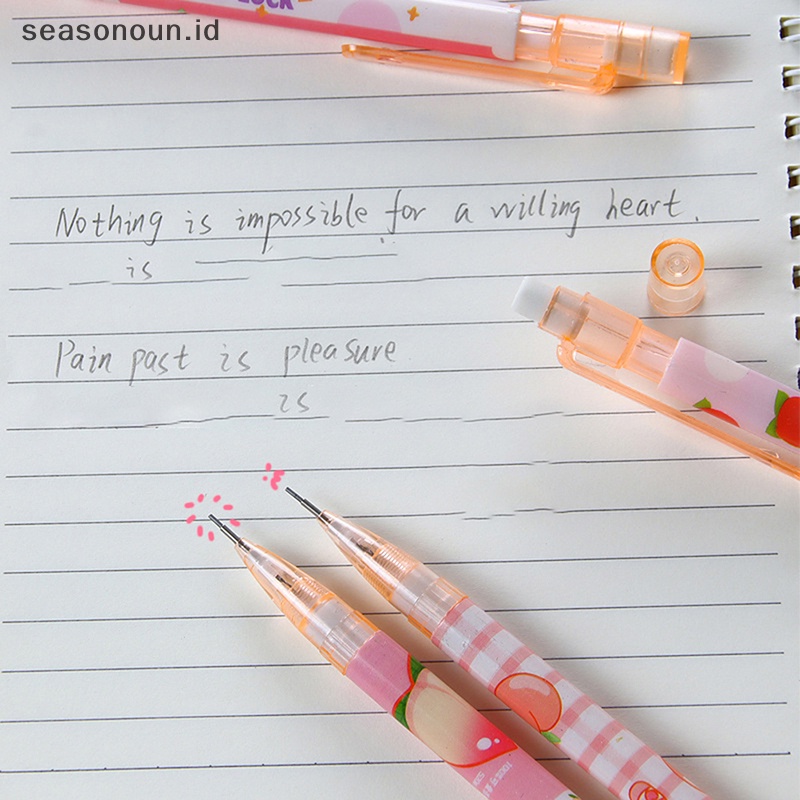 seasonoun.id
LOCK
Nothing is impossible for a willing heart.
is
Pain past is pleasure
is